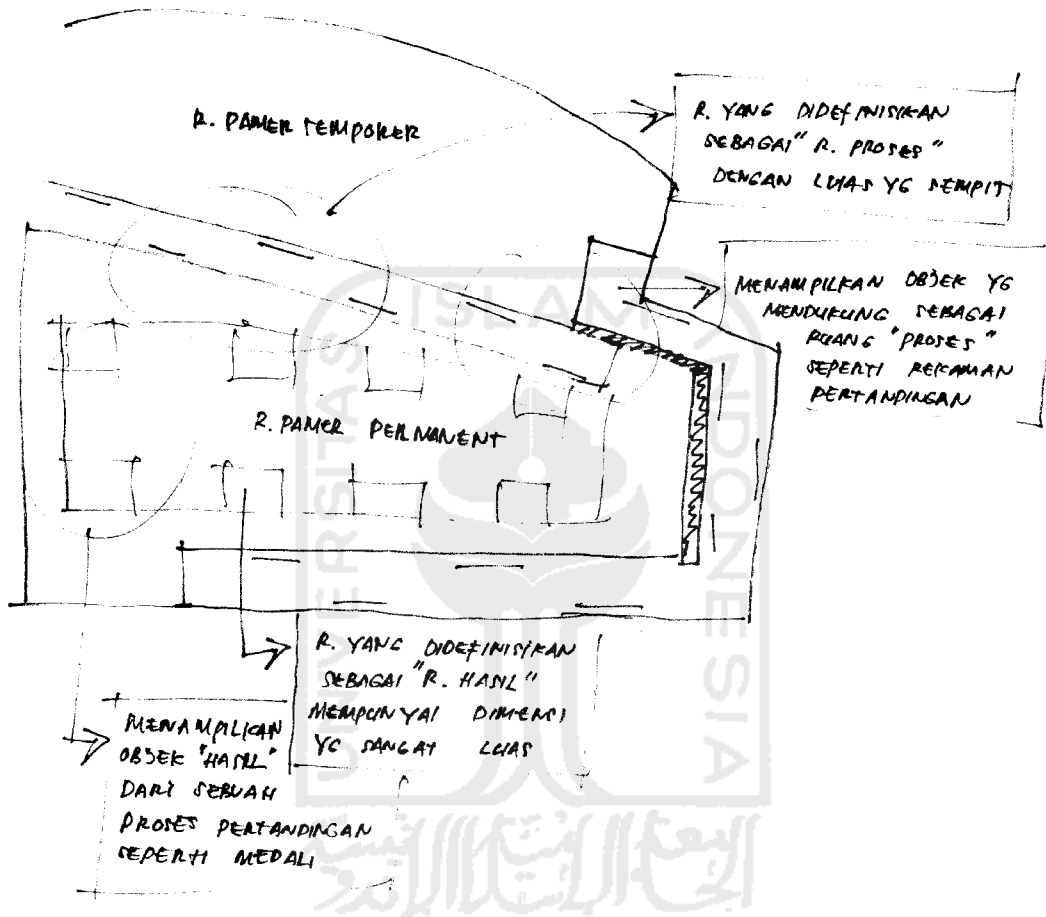 R. PAMER TEMPORER
R. YANG DIDEFINISIKAN
SEBAGAI "R. PROSES"
DENGAN LUAS YG SEMPIT
MENAMPILKAN OBJEK YG
MENDUKUNG SEBAGAI
RUANG "PROSES"
SEPERTI REKAMAN
PERTANDINGAN
R. PAMER PERMANENT
R. YANG DIDEFINISIKAN
SEBAGAI "R. HASIL"
MEMPUNYAI DIMENSI
YG SANGAT LUAS
MENAMPILKAN
OBJEK "HASIL"
DARI SEBUAH
PROSES PERTANDINGAN
SEPERTI MEDALI
ISLAM
UNIVERSITAS
INDONESIA